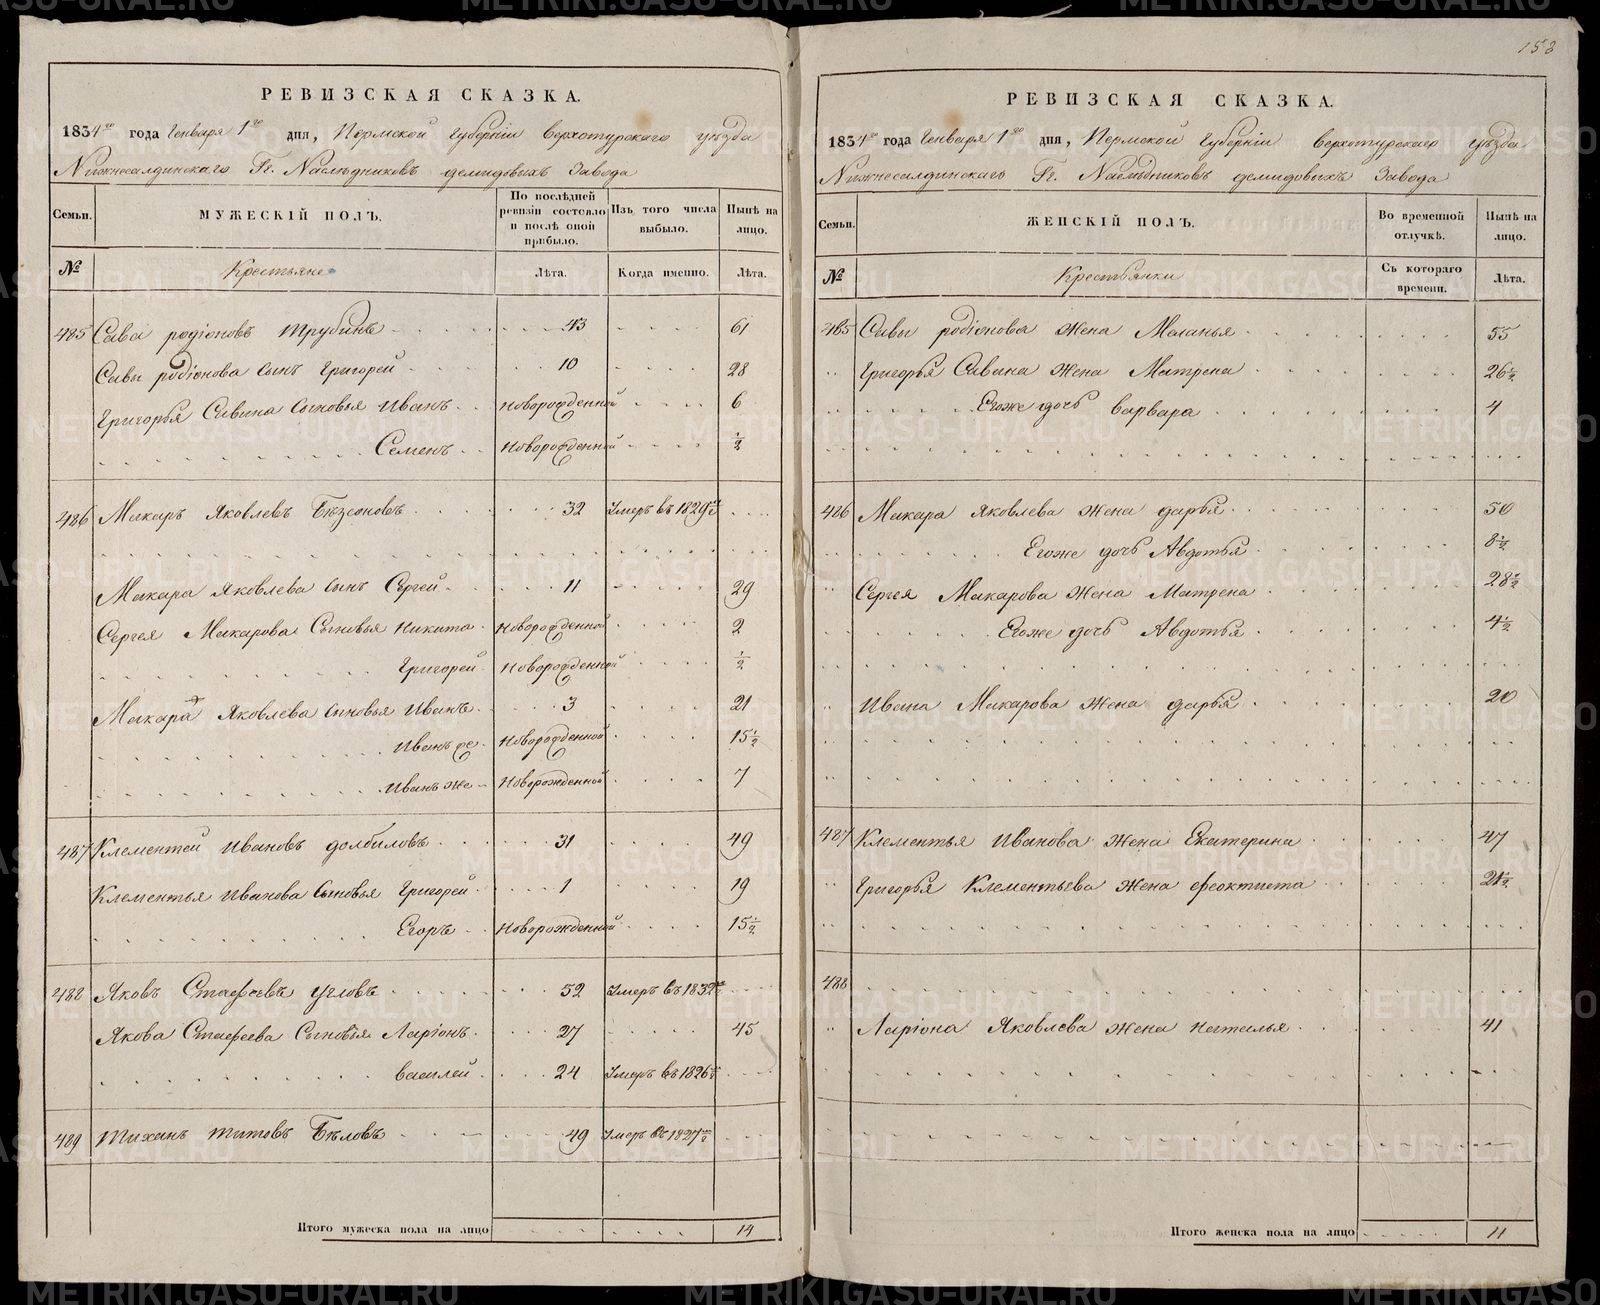 153
РЕВИЗСКАЯ СКАЗКА.
1834го года Генваря 1го дня, Пермской Губерніи Верхотурскаго уѣзда
Нижнесалдинскаго Гг. Наслѣдниковъ Демидовыхъ Завода
Семьи. МУЖЕСКІЙ ПОЛЪ. По послѣдней ревизіи состояло и послѣ оной прибыло. Изъ того числа выбыло. Нынѣ на лицо.
№ Крестьяне Лѣта. Когда именно. Лѣта.
485 Сава родіоновъ Трубинъ 43 61
Савы родіонова сынъ Григорей 10 28
Григорья Савина Сыновья Иванъ новорожденной 6
Семенъ новорожденной ½
486 Макаръ Яковлевъ Бѣзсоновъ 32 Умеръ въ 1829мъ
Макара Яковлева сынъ Сѣргей 11 29
Сергея Макарова Сыновья Никита Новорожденной 2
Григорей Новорожденной ½
Макара Яковлева сыновья Иванъ 3 21
Иванъ же Новорожденной 15½
Иванъ же Новорожденной 7
487 Клементей Ивановъ долбиловъ 31 49
Клементья Иванова Сыновья Григорей 1 19
Егоръ Новорожденной 15½
488 Яковъ Стафеевъ Угловъ 52 Умеръ въ 1832мъ
Якова Стафеева Сыновья Ларіонъ 27 45
василей 24 Умеръ въ 1826мъ
489 Тиханъ титовъ Бѣловъ 49 Умеръ въ 1827мъ
Итого мужеска пола на лицо 14
РЕВИЗСКАЯ СКАЗКА.
1834го года Генваря 1го дня, Пермской Губерніи верхотурскаго уѣзда
Нижнесалдинскаго Гг. Наслѣдниковъ демидовыхъ Завода
Семьи. ЖЕНСКІЙ ПОЛЪ. Во временной отлучкѣ. Нынѣ на лицо.
№ Крестьянки Съ котораго времени. Лѣта.
485 Савы родіонова жена Маланья 55
Григорья Савина жена Матрена 26½
Егоже дочь варвара 4
486 Макара Яковлева жена дарья 50
Егоже дочь Авдотья 8½
Сергея Макарова жена Матрена 28½
Егоже дочь Авдотья 4½
Ивана Макарова жена дарья 20
487 Клементья Иванова жена Екатерина 47
Григорья Клементьева жена феоктиста 21½
488
Ларіона Яковлева жена наталья 41
Итого женска пола на лицо 11
METRIKI.GASO-URAL.RU